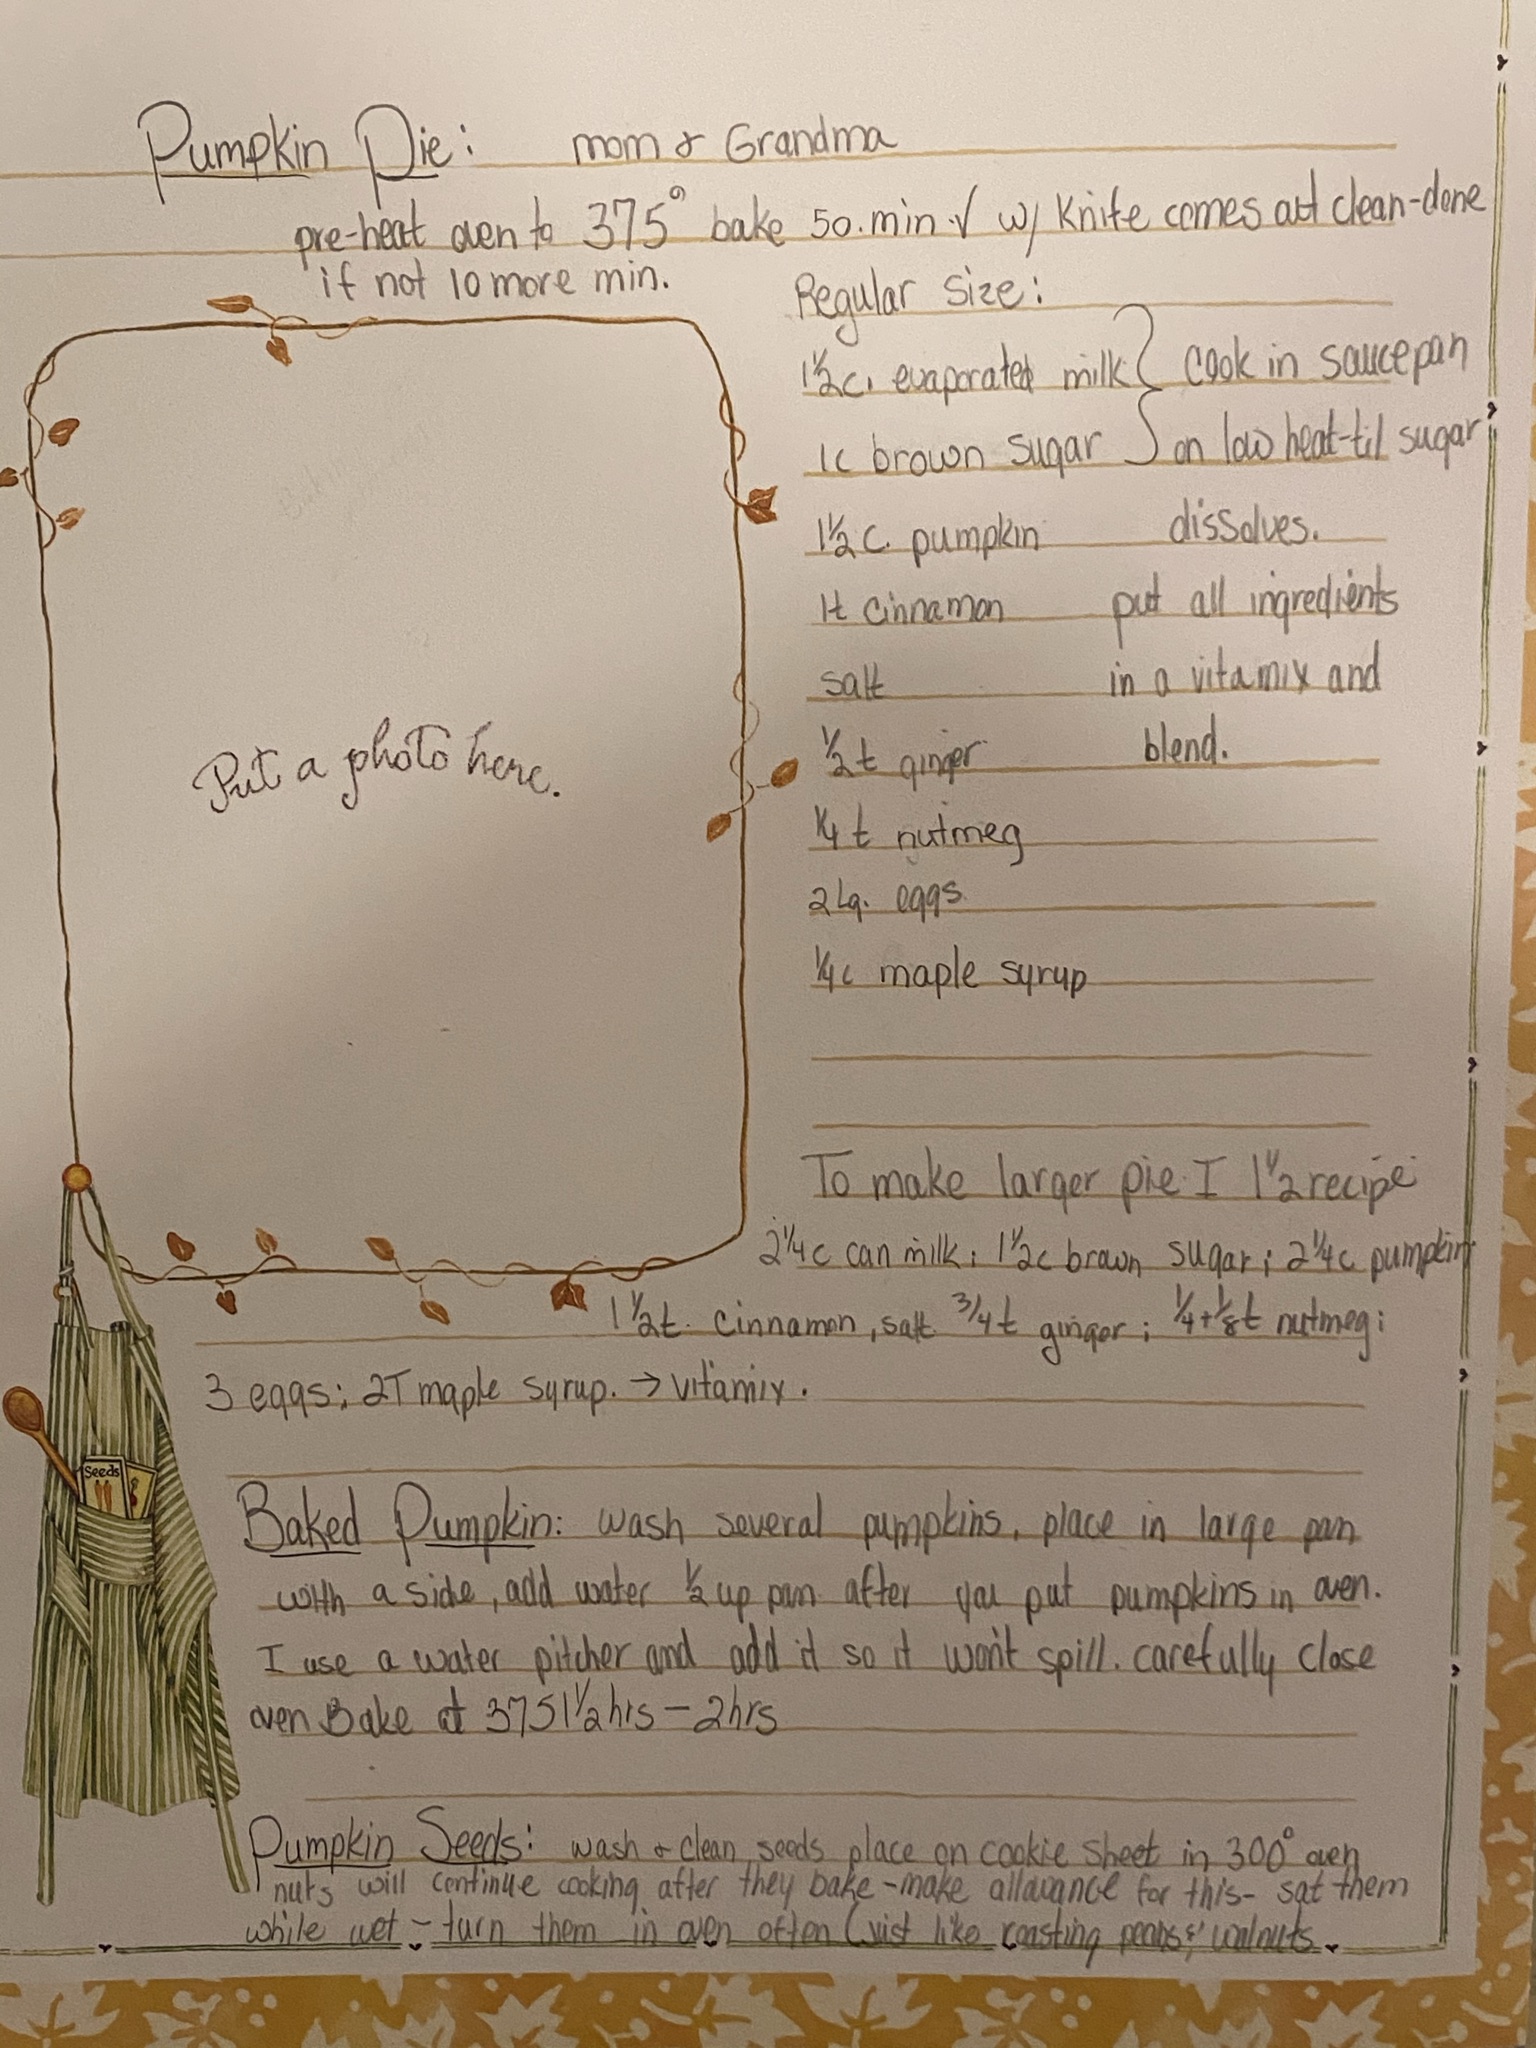 Pumpkin Pie: mom & Grandma
pre-heat oven to 375° bake 50.min √ w/ knife comes out clean-done
if not 10 more min.
Regular size:
1½c. evaporated milk } cook in saucepan
1c brown sugar } on low heat-til sugar
1½ c. pumpkin dissolves.
1t cinnamon put all ingredients
salt in a vitamix and
½ t ginger blend.
¼ t nutmeg
2 Lg. eggs
¼c maple syrup
Put a photo here.
To make larger pie I 1½ recipe
2¼c can milk; 1½c brown sugar; 2¼c pumpkin
1½t. cinnamon, salt ¾t ginger; ¼+⅛t nutmeg;
3 eggs; 2T maple syrup. → vitamix.
Seeds
Baked Pumpkin: wash several pumpkins, place in large pan
with a side, add water ½ up pan after you put pumpkins in oven.
I use a water pitcher and add it so it won't spill. carefully close
oven Bake at 375 1½hrs – 2hrs
Pumpkin Seeds: wash & clean seeds place on cookie sheet in 300° oven
nuts will continue cooking after they bake-make allowance for this- salt them
while wet – turn them in oven often (just like roasting pecans & walnuts.